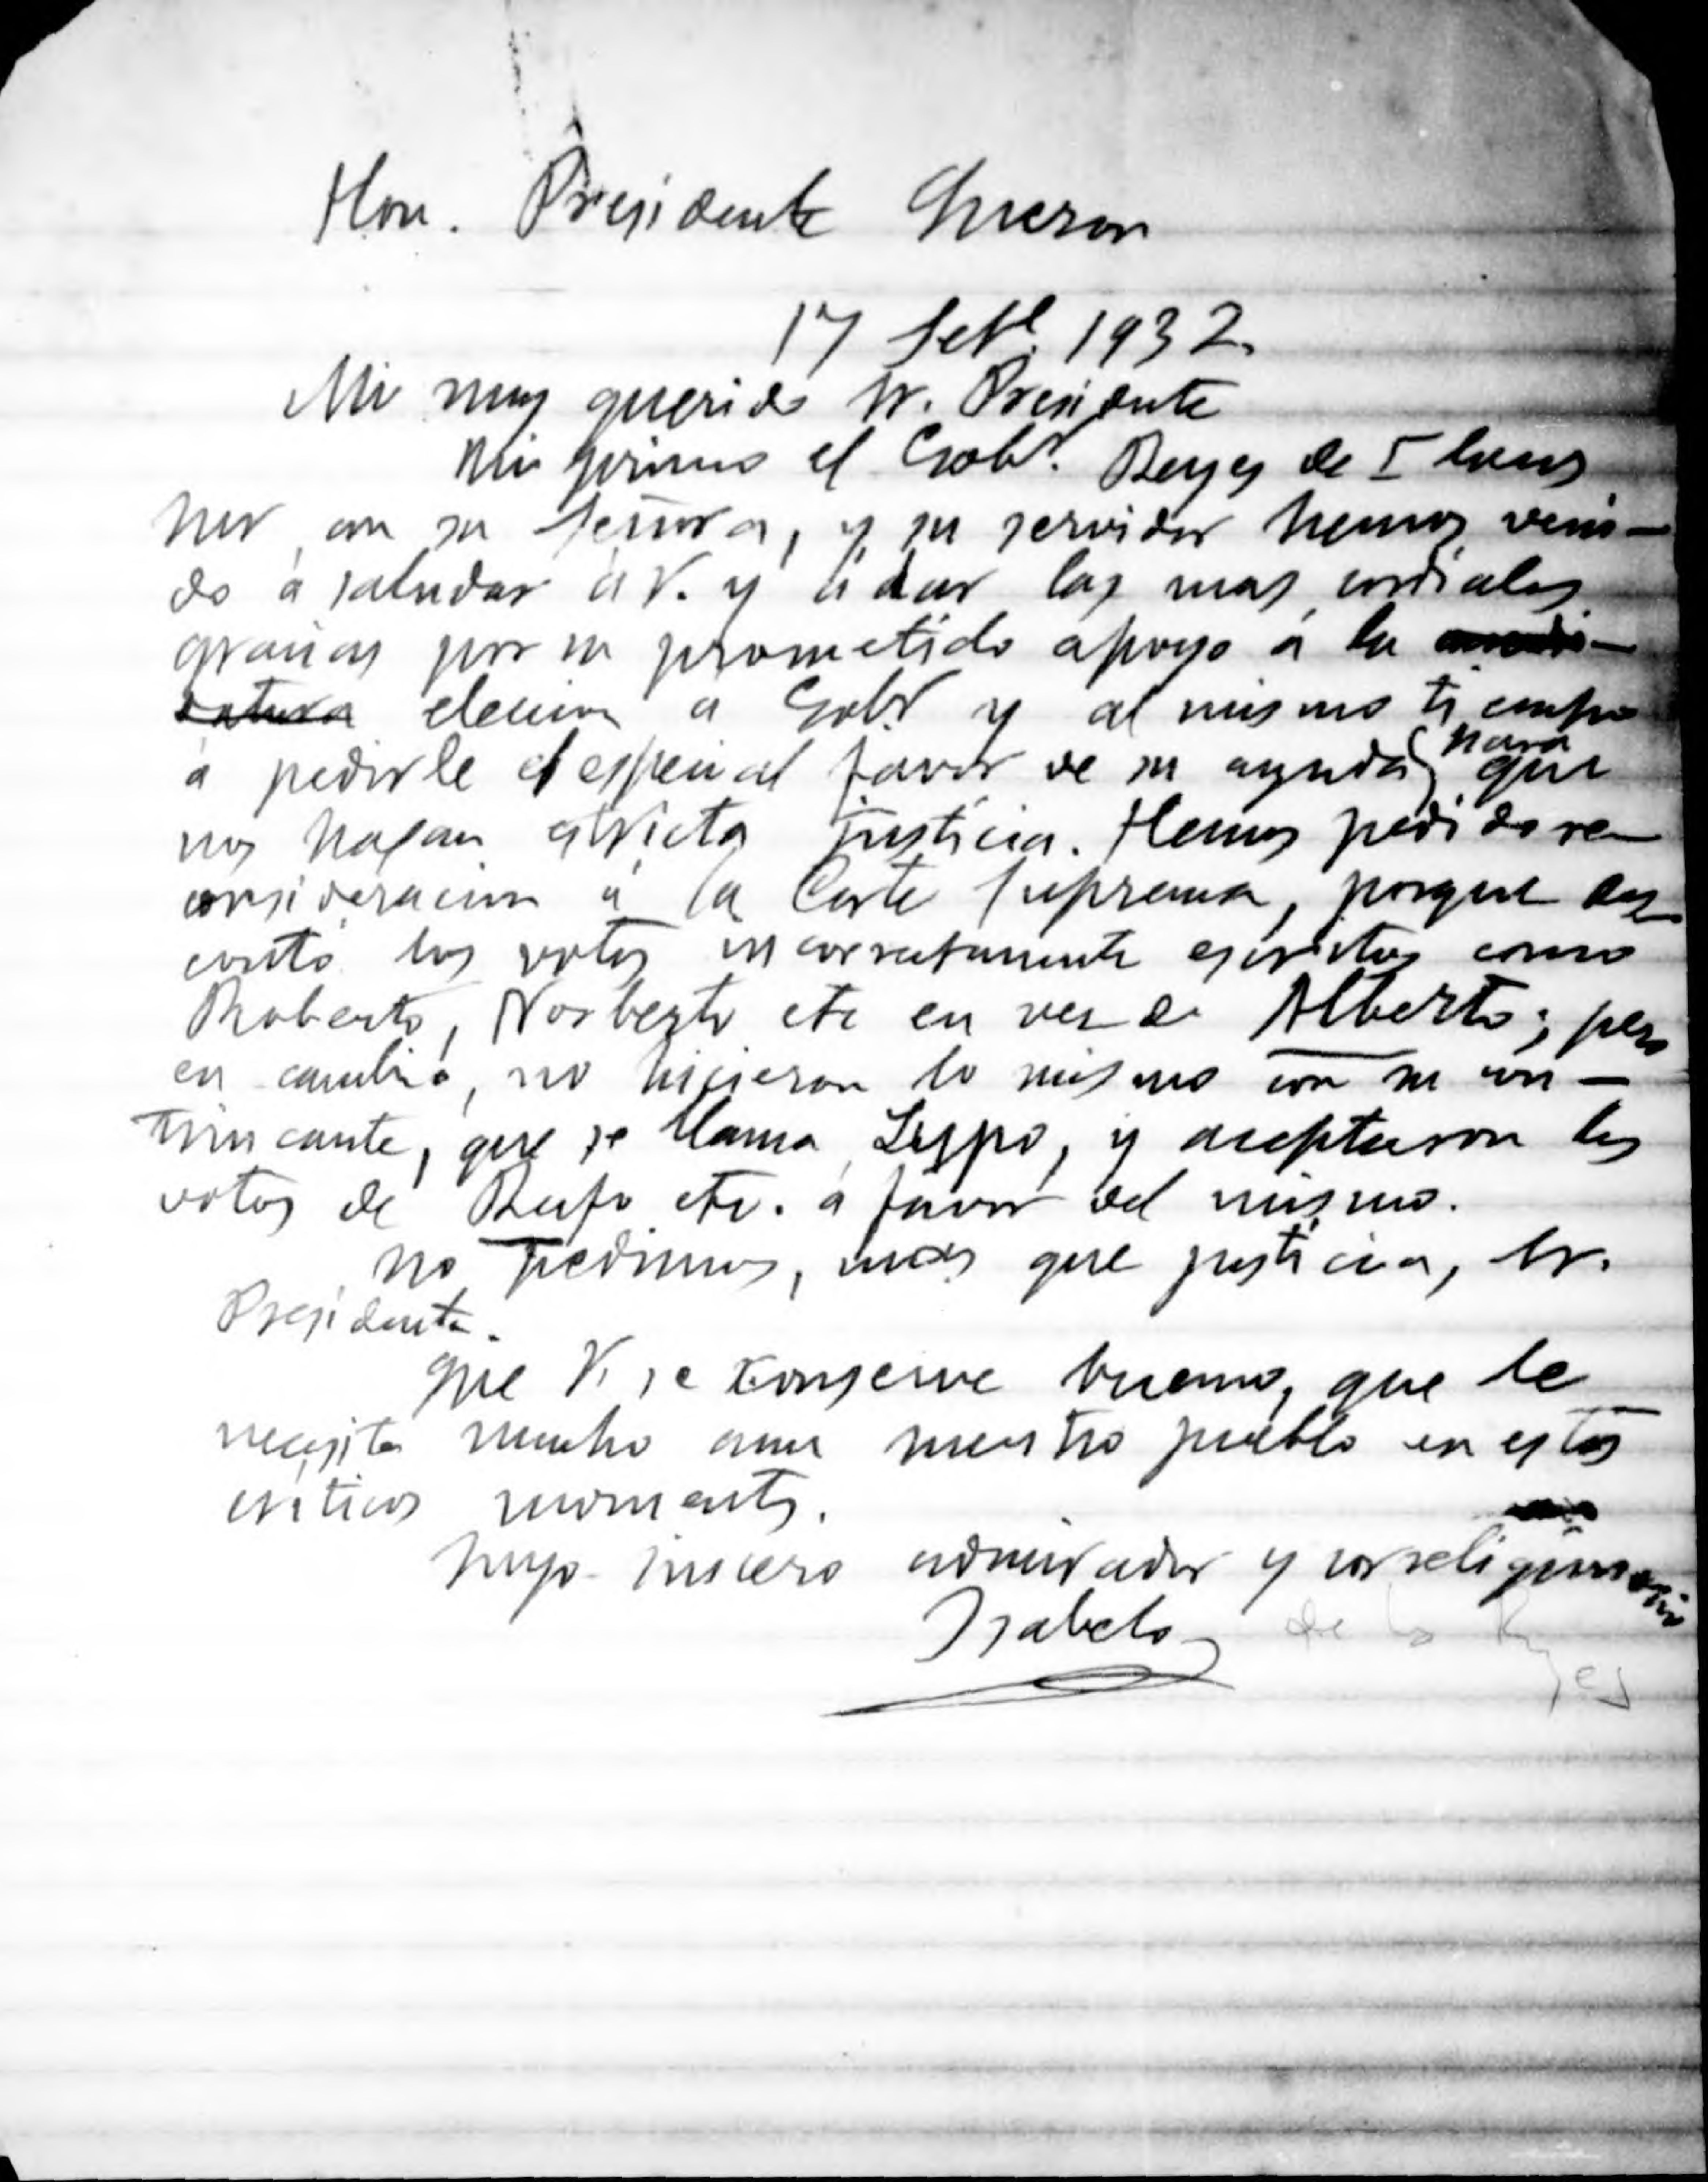 Hon. Presidente Quezon
17 Set.e 1932.
Mi muy querido Sr. Presidente
Mi primo el Gobr. Reyes de Ilocos
Sur, con su Señora, y su servidor hemos veni-
do á saludar á V. y á dar las mas cordiales
gracias por su prometido apoyo á la candi-
datura eleccion a Gobr y al mismo tiempo
á pedirle el especial favor de su ayuda para que
nos hagan estricta justicia. Hemos pedido re-
consideracion á la Corte Suprema, porque des-
contó los votos incorrectamente escritos como
Roberto, Norberto etc en vez de Alberto; pero
en cambio, no hicieron lo mismo con su con-
trincante, que se llama, y aceptaron los
votos de Rufo etc. á favor del mismo.
No pedimos, mas que justicia, Sr.
Presidente.
Que V. se conserve bueno, que le
necesita mucho nuestro pueblo en estos
criticos momentos.
Suyo sincero admirador y correligionario
Isabelo de los Reyes